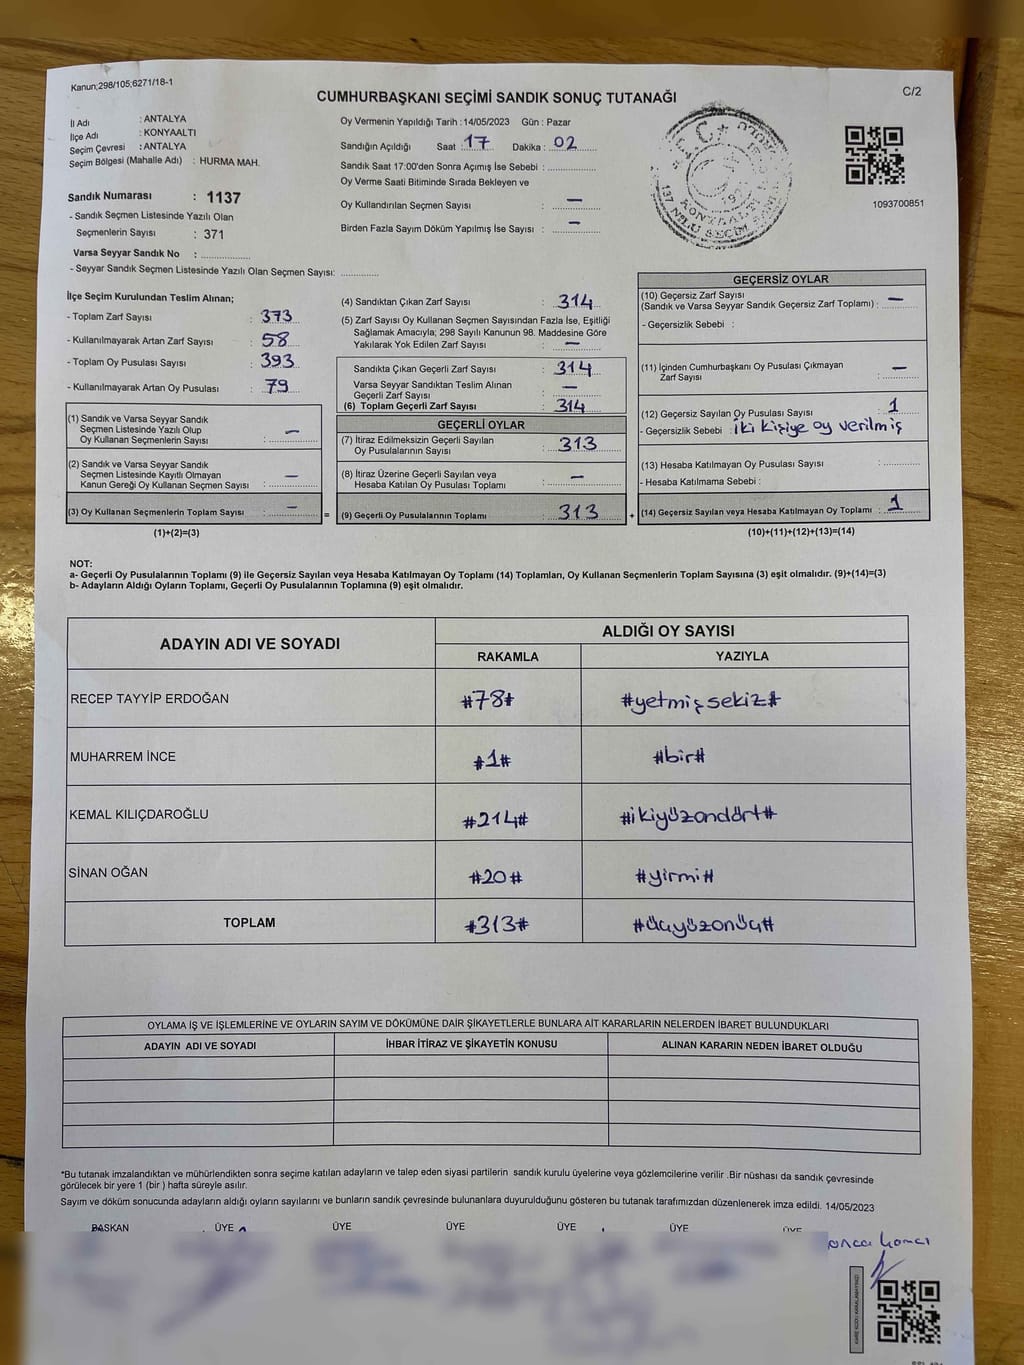 Kanun;298/105;6271/18-1
C/2
CUMHURBAŞKANI SEÇİMİ SANDIK SONUÇ TUTANAĞI
İl Adı : ANTALYA
İlçe Adı : KONYAALTI
Seçim Çevresi : ANTALYA
Seçim Bölgesi (Mahalle Adı) : HURMA MAH.
Sandık Numarası : 1137
- Sandık Seçmen Listesinde Yazılı Olan
Seçmenlerin Sayısı : 371
Varsa Seyyar Sandık No : ..............
- Seyyar Sandık Seçmen Listesinde Yazılı Olan Seçmen Sayısı: ............
Oy Vermenin Yapıldığı Tarih : 14/05/2023 Gün : Pazar
Sandığın Açıldığı Saat : 17 Dakika : 02
Sandık Saat 17:00'den Sonra Açımış İse Sebebi : ..............
Oy Verme Saati Bitiminde Sırada Bekleyen ve
Oy Kullandırılan Seçmen Sayısı : —
Birden Fazla Sayım Döküm Yapılmış İse Sayısı : —
1093700851
İlçe Seçim Kurulundan Teslim Alınan;
- Toplam Zarf Sayısı : 373
- Kullanılmayarak Artan Zarf Sayısı : 58
- Toplam Oy Pusulası Sayısı : 393
- Kullanılmayarak Artan Oy Pusulası : 79
(1) Sandık ve Varsa Seyyar Sandık
Seçmen Listesinde Yazılı Olup
Oy Kullanan Seçmenlerin Sayısı : —
(2) Sandık ve Varsa Seyyar Sandık
Seçmen Listesinde Kayıtlı Olmayan
Kanun Gereği Oy Kullanan Seçmen Sayısı : —
(3) Oy Kullanan Seçmenlerin Toplam Sayısı : — =
(1)+(2)=(3)
(4) Sandıktan Çıkan Zarf Sayısı : 314
(5) Zarf Sayısı Oy Kullanan Seçmen Sayısından Fazla İse, Eşitliği
Sağlamak Amacıyla; 298 Sayılı Kanunun 98. Maddesine Göre
Yakılarak Yok Edilen Zarf Sayısı : —
Sandıkta Çıkan Geçerli Zarf Sayısı : 314
Varsa Seyyar Sandıktan Teslim Alınan
Geçerli Zarf Sayısı : —
(6) Toplam Geçerli Zarf Sayısı : 314
GEÇERLİ OYLAR
(7) İtiraz Edilmeksizin Geçerli Sayılan
Oy Pusulasının Sayısı : 313
(8) İtiraz Üzerine Geçerli Sayılan veya
Hesaba Katılan Oy Pusulası Toplamı : —
(9) Geçerli Oy Pusulalarının Toplamı : 313 +
GEÇERSİZ OYLAR
(10) Geçersiz Zarf Sayısı
(Sandık ve Varsa Seyyar Sandık Geçersiz Zarf Toplamı) : —
- Geçersizlik Sebebi :
(11) İçinden Cumhurbaşkanı Oy Pusulası Çıkmayan
Zarf Sayısı : —
(12) Geçersiz Sayılan Oy Pusulası Sayısı : 1
- Geçersizlik Sebebi : iki kişiye oy verilmiş
(13) Hesaba Katılmayan Oy Pusulası Sayısı : ............
- Hesaba Katılmama Sebebi :
(14) Geçersiz Sayılan veya Hesaba Katılmayan Oy Toplamı : 1
(10)+(11)+(12)+(13)=(14)
NOT:
a- Geçerli Oy Pusulalarının Toplamı (9) ile Geçersiz Sayılan veya Hesaba Katılmayan Oy Toplamı (14) Toplamları, Oy Kullanan Seçmenlerin Toplam Sayısına (3) eşit olmalıdır. (9)+(14)=(3)
b- Adayların Aldığı Oyların Toplamı, Geçerli Oy Pusulalarının Toplamına (9) eşit olmalıdır.
ADAYIN ADI VE SOYADI ALDIĞI OY SAYISI
RAKAMLA YAZIYLA
RECEP TAYYİP ERDOĞAN #78# #yetmişsekiz#
MUHARREM İNCE #1# #bir#
KEMAL KILIÇDAROĞLU #214# #ikiyüzondört#
SİNAN OĞAN #20# #yirmi#
TOPLAM #313# #üçyüzonüç#
OYLAMA İŞ VE İŞLEMLERİNE VE OYLARIN SAYIM VE DÖKÜMÜNE DAİR ŞİKAYETLERLE BUNLARA AİT KARARLARIN NELERDEN İBARET BULUNDUKLARI
ADAYIN ADI VE SOYADI İHBAR İTİRAZ VE ŞİKAYETİN KONUSU ALINAN KARARIN NEDEN İBARET OLDUĞU
*Bu tutanak imzalandıktan ve mühürlendikten sonra seçime katılan adayların ve talep eden siyasi partilerin sandık kurulu üyelerine veya gözlemcilerine verilir .Bir nüshası da sandık çevresinde
görülecek bir yere 1 (bir ) hafta süreyle asılır.
Sayım ve döküm sonucunda adayların aldığı oyların sayılarını ve bunların sandık çevresinde bulunanlara duyurulduğunu gösteren bu tutanak tarafımızdan düzenlenerek imza edildi. 14/05/2023
BAŞKAN ÜYE ÜYE ÜYE ÜYE ÜYE ÜYE